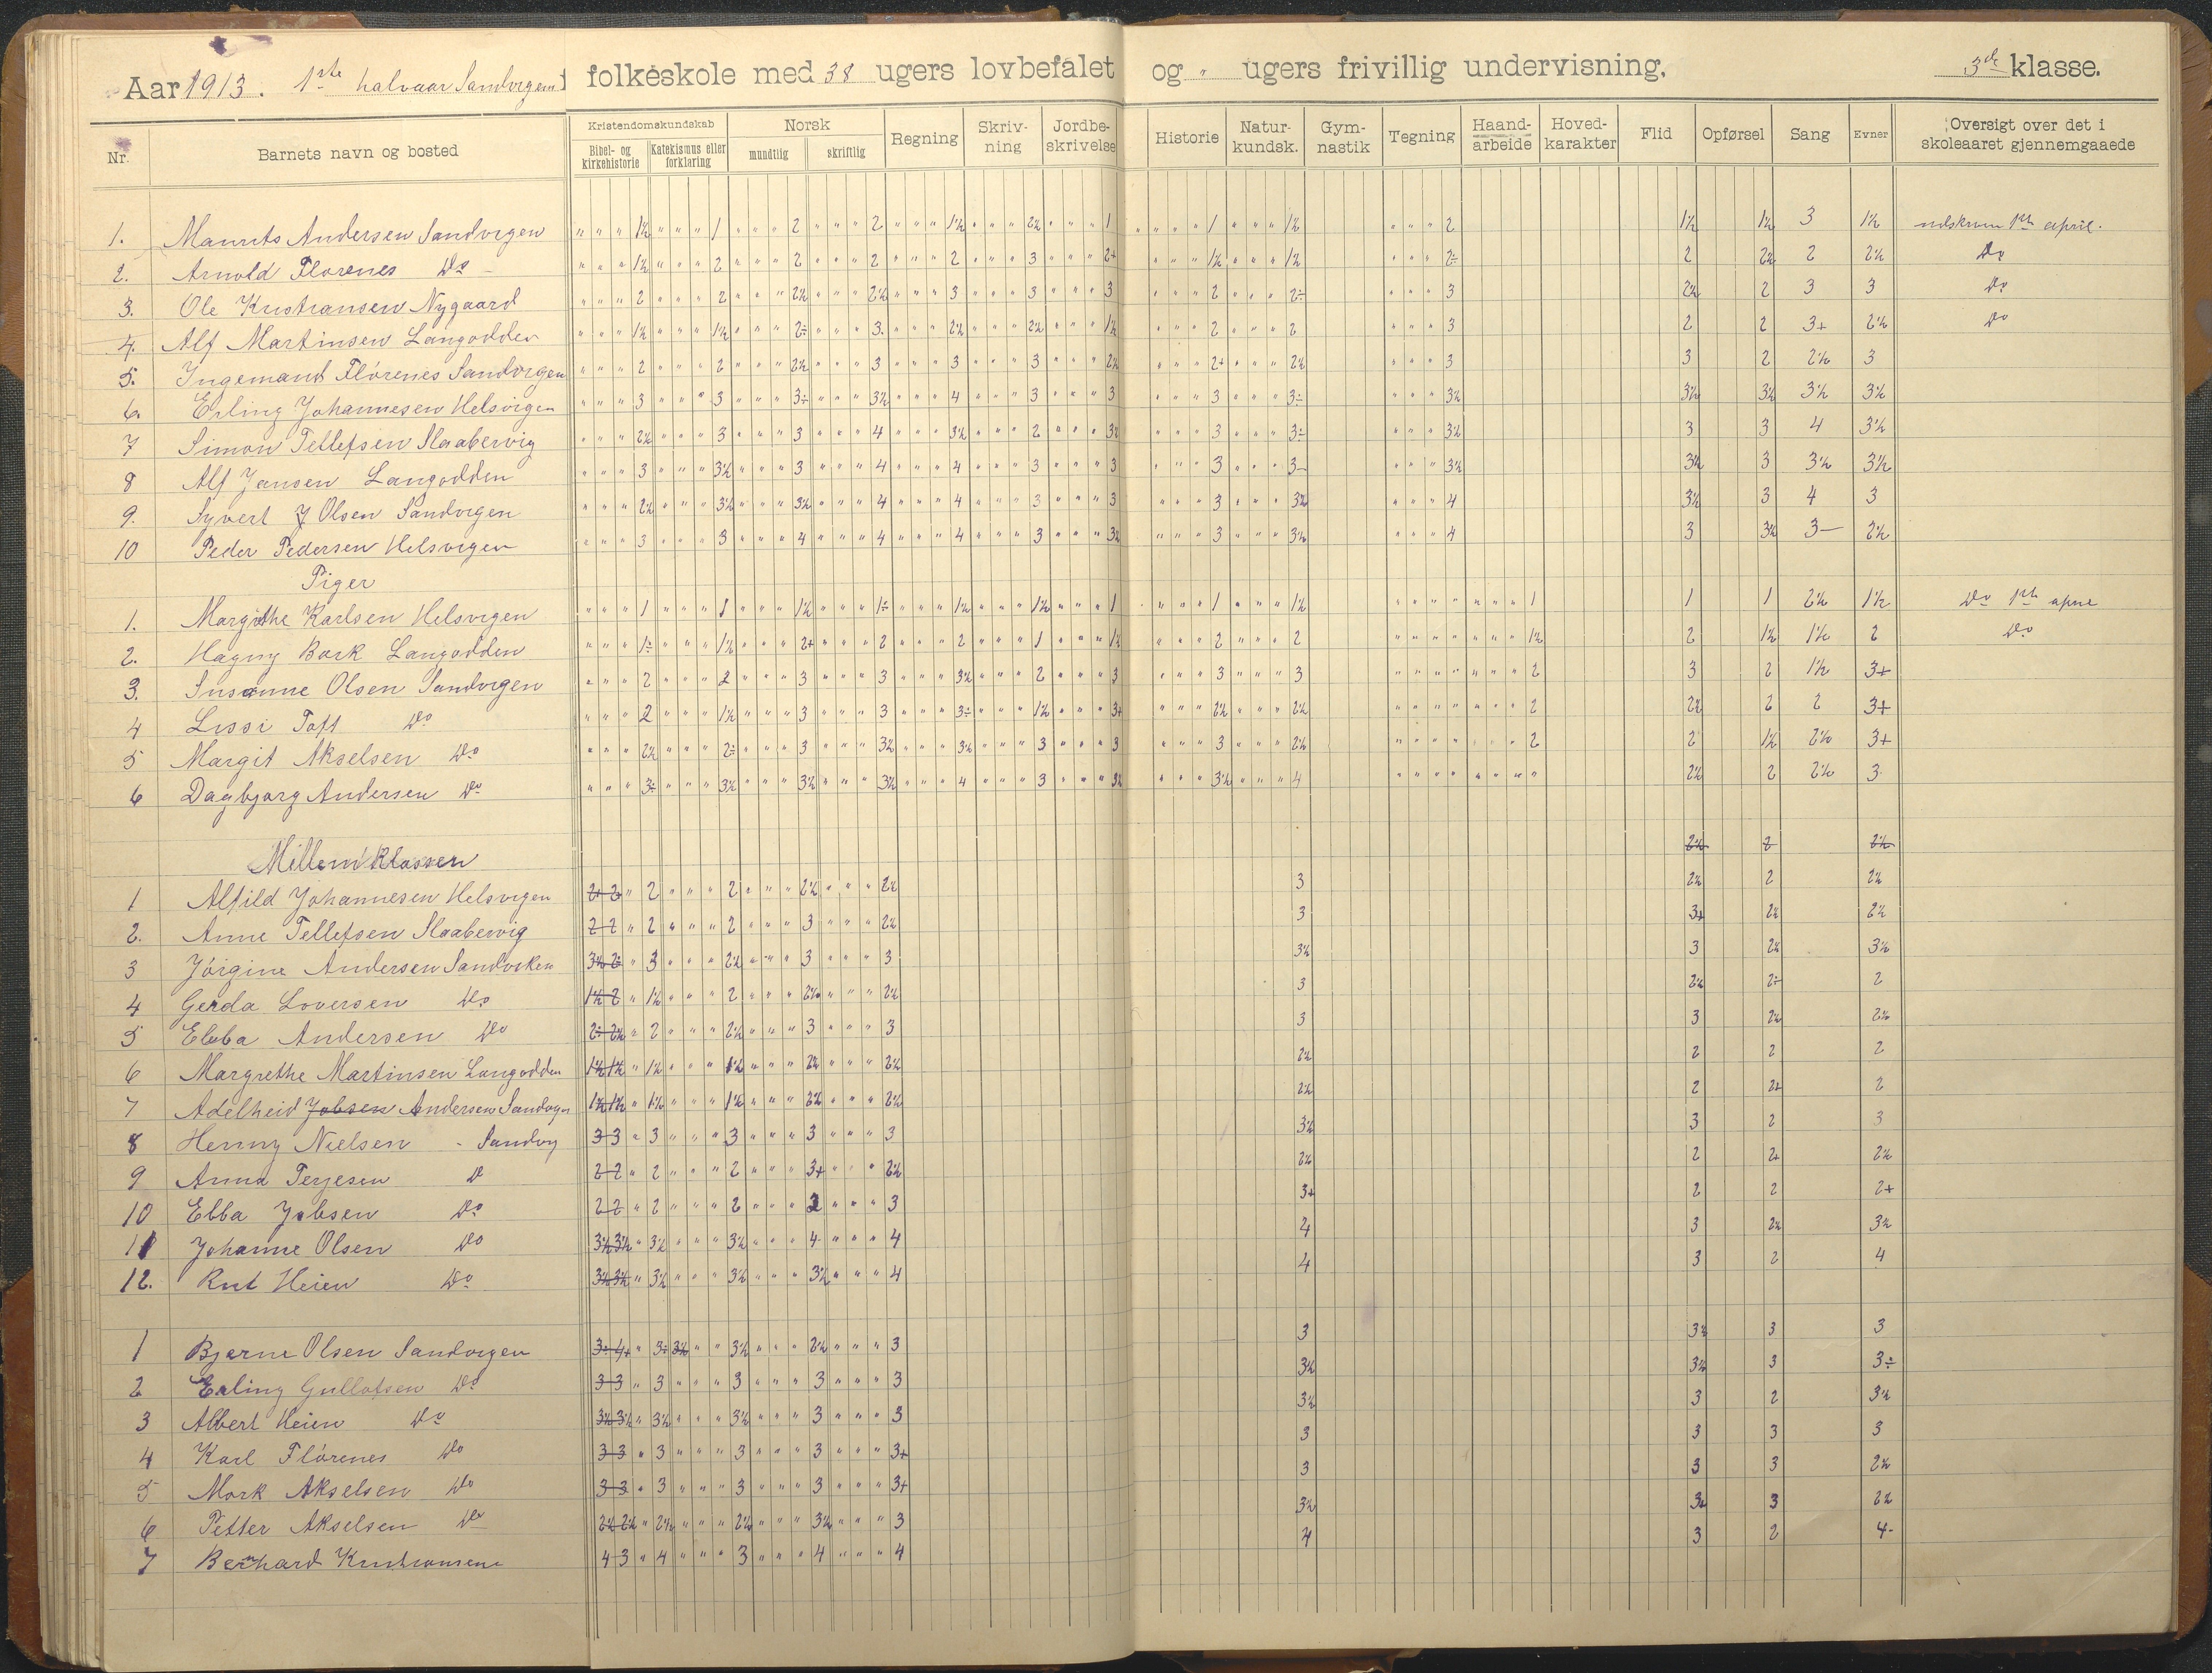 Aar 1913. 1ste halvaar Sandvigens folkeskole med 38 ugers lovbefalet og " ugers frivillig undervisning. 3de klasse.
Nr. Barnets navn og bosted Kristendomskundskab Bibel- og kirkehistorie Katekismus eller forklaring Norsk mundtlig skriftlig Regning Skriv-ning Jordbe-skrivelse Historie Natur-kundsk. Gym-nastik Tegning Haand-arbeide Hoved-karakter Flid Opførsel Sang Evner Oversigt over det i skoleaaret gjennemgaaede
1. Maurits Andersen Sandvigen " " " 1½ " " " 1 " " " 2 " " " 2 " " " 1½ " " " 2½ " " " 1 " " " 1 " " " 1½ " " " 2 1½ 1½ 3 1½ udskreven 1ste april.
2. Arnold Florenes Do " " " 1½ " " " 2 " " " 2 " " " 2 " " " 2 " " " 3 " " " 2+ " " " 1½ " " " 1½ " " " 2÷ 2 2½ 2 2½ Do
3. Ole Kristiansen Nygaard " " " 2 " " " 2 " " " 2½ " " " 2½ " " " 3 " " " 3 " " " 3 " " " 2 " " " 2÷ " " " 3 2½ 2 3 3 Do
4. Alf Martinsen Langodden " " " 1½ " " " 1½ " " " 2÷ " " " 3. " " " 2½ " " " 2½ " " " 1½ " " " 2 " " " 2 " " " 3 2 2 3+ 2½ Do
5. Ingemand Flórenes Sandvigen " " " 2 " " " 2 " " " 2½ " " " 3 " " " 3 " " " 3 " " " 2½ " " " 2+ " " " 2½ " " " 3 3 2 2½ 3
6. Erling Johannesen Helsvigen " " " 3 " " " 3 " " " 3÷ " " " 3½ " " " 4 " " " 3 " " " 3 " " " 3 " " " 3÷ " " " 3½ 3½ 3½ 3½ 3½
7 Simon Tellefsen Slaabervig " " " 2½ " " " 3 " " " 3 " " " 4 " " " 3½ " " " 2 " " " 3½ " " " 3 " " " 3÷ " " " 3½ 3 3 4 3½
8 Alf Jansen Langodden " " " 3 " " " 3½ " " " 3 " " " 4 " " " 4 " " " 3 " " " 3 " " " 3 " " " 3— " " " 3½ 3½ 3 3½ 3½
9. Syvert J Olsen Sandvigen " " " 2½ " " " 3½ " " " 3½ " " " 4 " " " 4 " " " 3 " " " 3 " " " 3 " " " 3½ " " " 4 3½ 3 4 3
10 Peder Pedersen Helsvigen " " " 3 " " " 3 " " " 4 " " " 4 " " " 4 " " " 3 " " " 3½ " " " 3 " " " 3½ " " " 4 3 3½ 3— 2½
Piger
1. Margithe Karlsen Helsvigen " " " 1 " " " 1 " " " 1½ " " " 1÷ " " " 1½ " " " 1½ " " " 1 " " " 1 " " " 1½ " " " " " " " 1 1 1 2½ 1½ Do 1ste
2. Hagny Bork Langodden " " " 1÷ " " " 1½ " " " 2+ " " " 2 " " " 2 " " " 1 " " " 1½ " " " 2 " " " 2 " " " " " " " 1½ 2 1½ 1½ 2 Do
3. Susanne Olsen Sandvigen " " " 2 " " " 2 " " " 3 " " " 3 " " " 3½ " " " 2 " " " 3 " " " 3 " " " 3 " " " " " " " 2 3 2 1½ 3+
4 Lissi Toft Do " " " 2 " " " 1½ " " " 3 " " " 3 " " " 3÷ " " " 1½ " " " 3+ " " " 2½ " " " 2½ " " " " " " " 2 2½ 2 2 3+
5 Margit Akselsen Do " " " 2½ " " " 2÷ " " " 3 " " " 3½ " " " 3½ " " " 3 " " " 3 " " " 3 " " " 2½ " " " " " " " 2 2 1½ 2½ 3+
6 Dagbjorg Andersen Do " " " 3÷ " " " 3½ " " " 3½ " " " 3½ " " " 4 " " " 3 " " " 3½ " " " 3½ " " " 4 " " " " " " " " 2½ 2 2½ 3
Millem Klassen 2½ 2 2½
1 Alfild Johannesen Helsvigen 2+ 2 " 2 " " " 2 " " " 2½ " " " 2½ 3 2½ 2 2½
2. Anne Tellefsen Slaabervig 2 2 " 2 " " " 2 " " " 3 " " " 2½ 3 3+ 2½ 2½
3 Jórgine Andersen Sandviken 3½ 2÷ " 3 " " " 2½ " " " 3 " " " 3 3½ 3 2½ 3½
4 Gerda Loversen Do 1½ 2 " 1½ " " " 2 " " " 2½ " " " 2½ 3 2½ 2÷ 2
5 Ebba Andersen Do 2÷ 2½ " 2 " " " 2½ " " " 3 " " " 3 3 3 2½ 2½
6 Margrethe Martinsen Langodden 1½ 1½ " 1½ " " " 1½ " " " 2½ " " " 2½ 2½ 2 2 2
7 Adelheid Jobsen Andersen Sandvigen 1½ 1½ " 1½ " " " 1½ " " " 2½ " " " 2½ 2½ 2 2+ 2
8 Henny Nielsen - Sandvig 3 3 " 3 " " " 3 " " " 3 " " " 3 3½ 3 2 3
9 Anna Terjesen D 2 2 " 2 " " " 2 " " " 3+ " " " 2½ 2½ 2 2+ 2½
10 Ebba Jobsen Do 2 2 " 2 " " " 2 " " " 3 " " " 3 3+ 2 2 2+
11 Johanne Olsen Do 3½ 3½ " 3½ " " " 3½ " " " 4 " " " 4 4 3 2½ 3½
12. Rut Heien Do 3½ 3½ " 3½ " " " 3½ " " " 3½ " " " 4 4 3 2 4
1 Bjarne Olsen Sandvigen 3÷ 4+ " 3÷ 3½ " " 3½ " " " 2½ " " " 3 3 3½ 3 3
2 Erling Gullofsen Do 3 3 " 3 " " " 3 " " " 3 " " " 3 3½ 3½ 3 3÷
3 Albert Heien Do 3½ 3½ " 3½ " " " 3½ " " " 3 " " " 3 3½ 3 2 3½
4 Karl Flórenes Do 3 3 " 3 " " " 3 " " " 3 " " " 3+ 3 3 3 3
5 Mork Akselsen Do 3 3 " 3 " " " 3 " " " 3 " " " 3+ 3 3 3 2½
6 Petter Akselsen Do 2½ 2½ " 2½ " " " 2½ " " " 3½ " " " 3 3½ 3+ 3 2½
7 Bernhard Kristiansen 4 3 " 4 " " " 3 " " " 4 " " " 4 4 3 2 4-